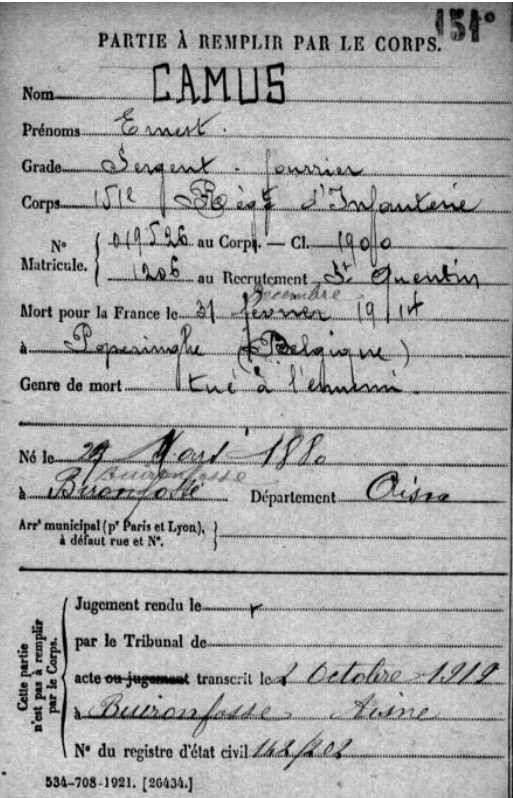 151°
PARTIE À REMPLIR PAR LE CORPS.
Nom CAMUS
Prénoms Ernest.
Grade Sergent - fourrier
Corps 151e Régt d'Infanterie
N° Matricule. { 019526 au Corps. — Cl. 1900
1206 au Recrutement St Quentin
Décembre
Mort pour la France le 31 février 1914
à Poperinghe (Belgique)
Genre de mort tué à l'ennemi
Né le 29 Mars 1880
Buironfosse
à Bironfosse Département Aisne
Arrt municipal (pr Paris et Lyon), à défaut rue et N°. }
Cette partie n'est pas à remplir par le Corps. {
Jugement rendu le
par le Tribunal de
acte ou jugement transcrit le 2 Octobre 1919
à Buironfosse Aisne
N° du registre d'état civil 142/202
534-708-1921. [26434.]